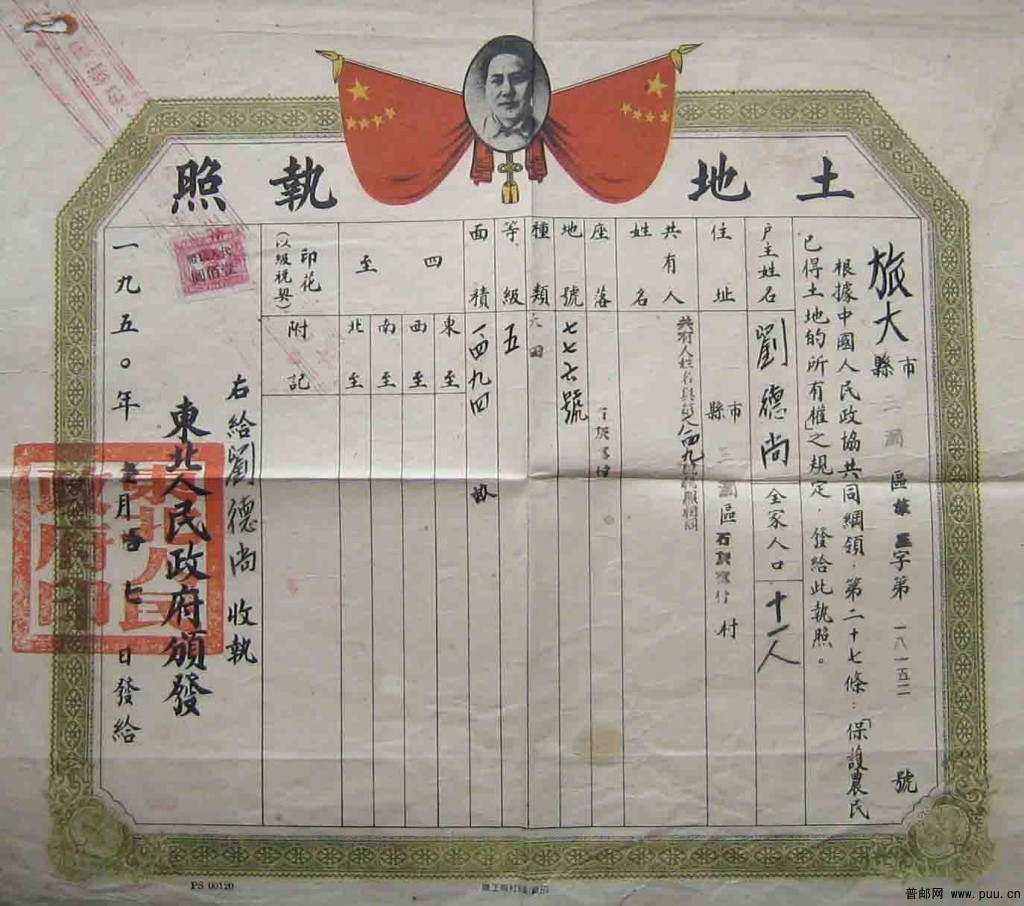 土地執照
旅大市縣 三澗區 字第一八一五二號
根據中國人民政協共同綱領,第二十七條:「保護農民
已得土地的所有權」之規定,發給此執照。
戶主姓名 劉德尚 全家人口 十一人
住址 市縣 三澗區 村
共有人姓名
座落
地號 七七六號
種類 大田
等級 五
面積 一四九四
四至
東至
西至
南至
北至
印花(以級税契)
附記
右給劉德尚收執
東北人民政府頒發
一九五〇年 月 日發給
東北人民政府印
壹佰圓
PS 00120
普邮网 www.puu.cn